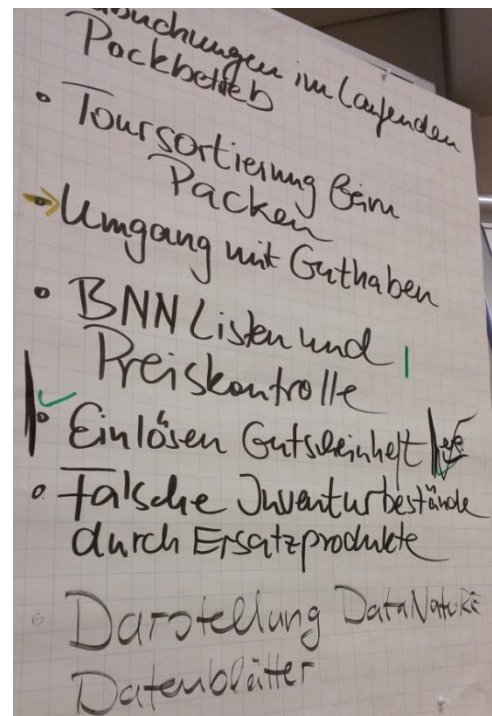 im laufenden
Packbetrieb
• Toursortierung beim
Packen
→ Umgang mit Guthaben
• BNN Listen und
Preiskontrolle
• Einlösen Gutscheinheft
• Falsche Inventurbestände
durch Ersatzprodukte
• Darstellung DataNatuRE
Datenblätter